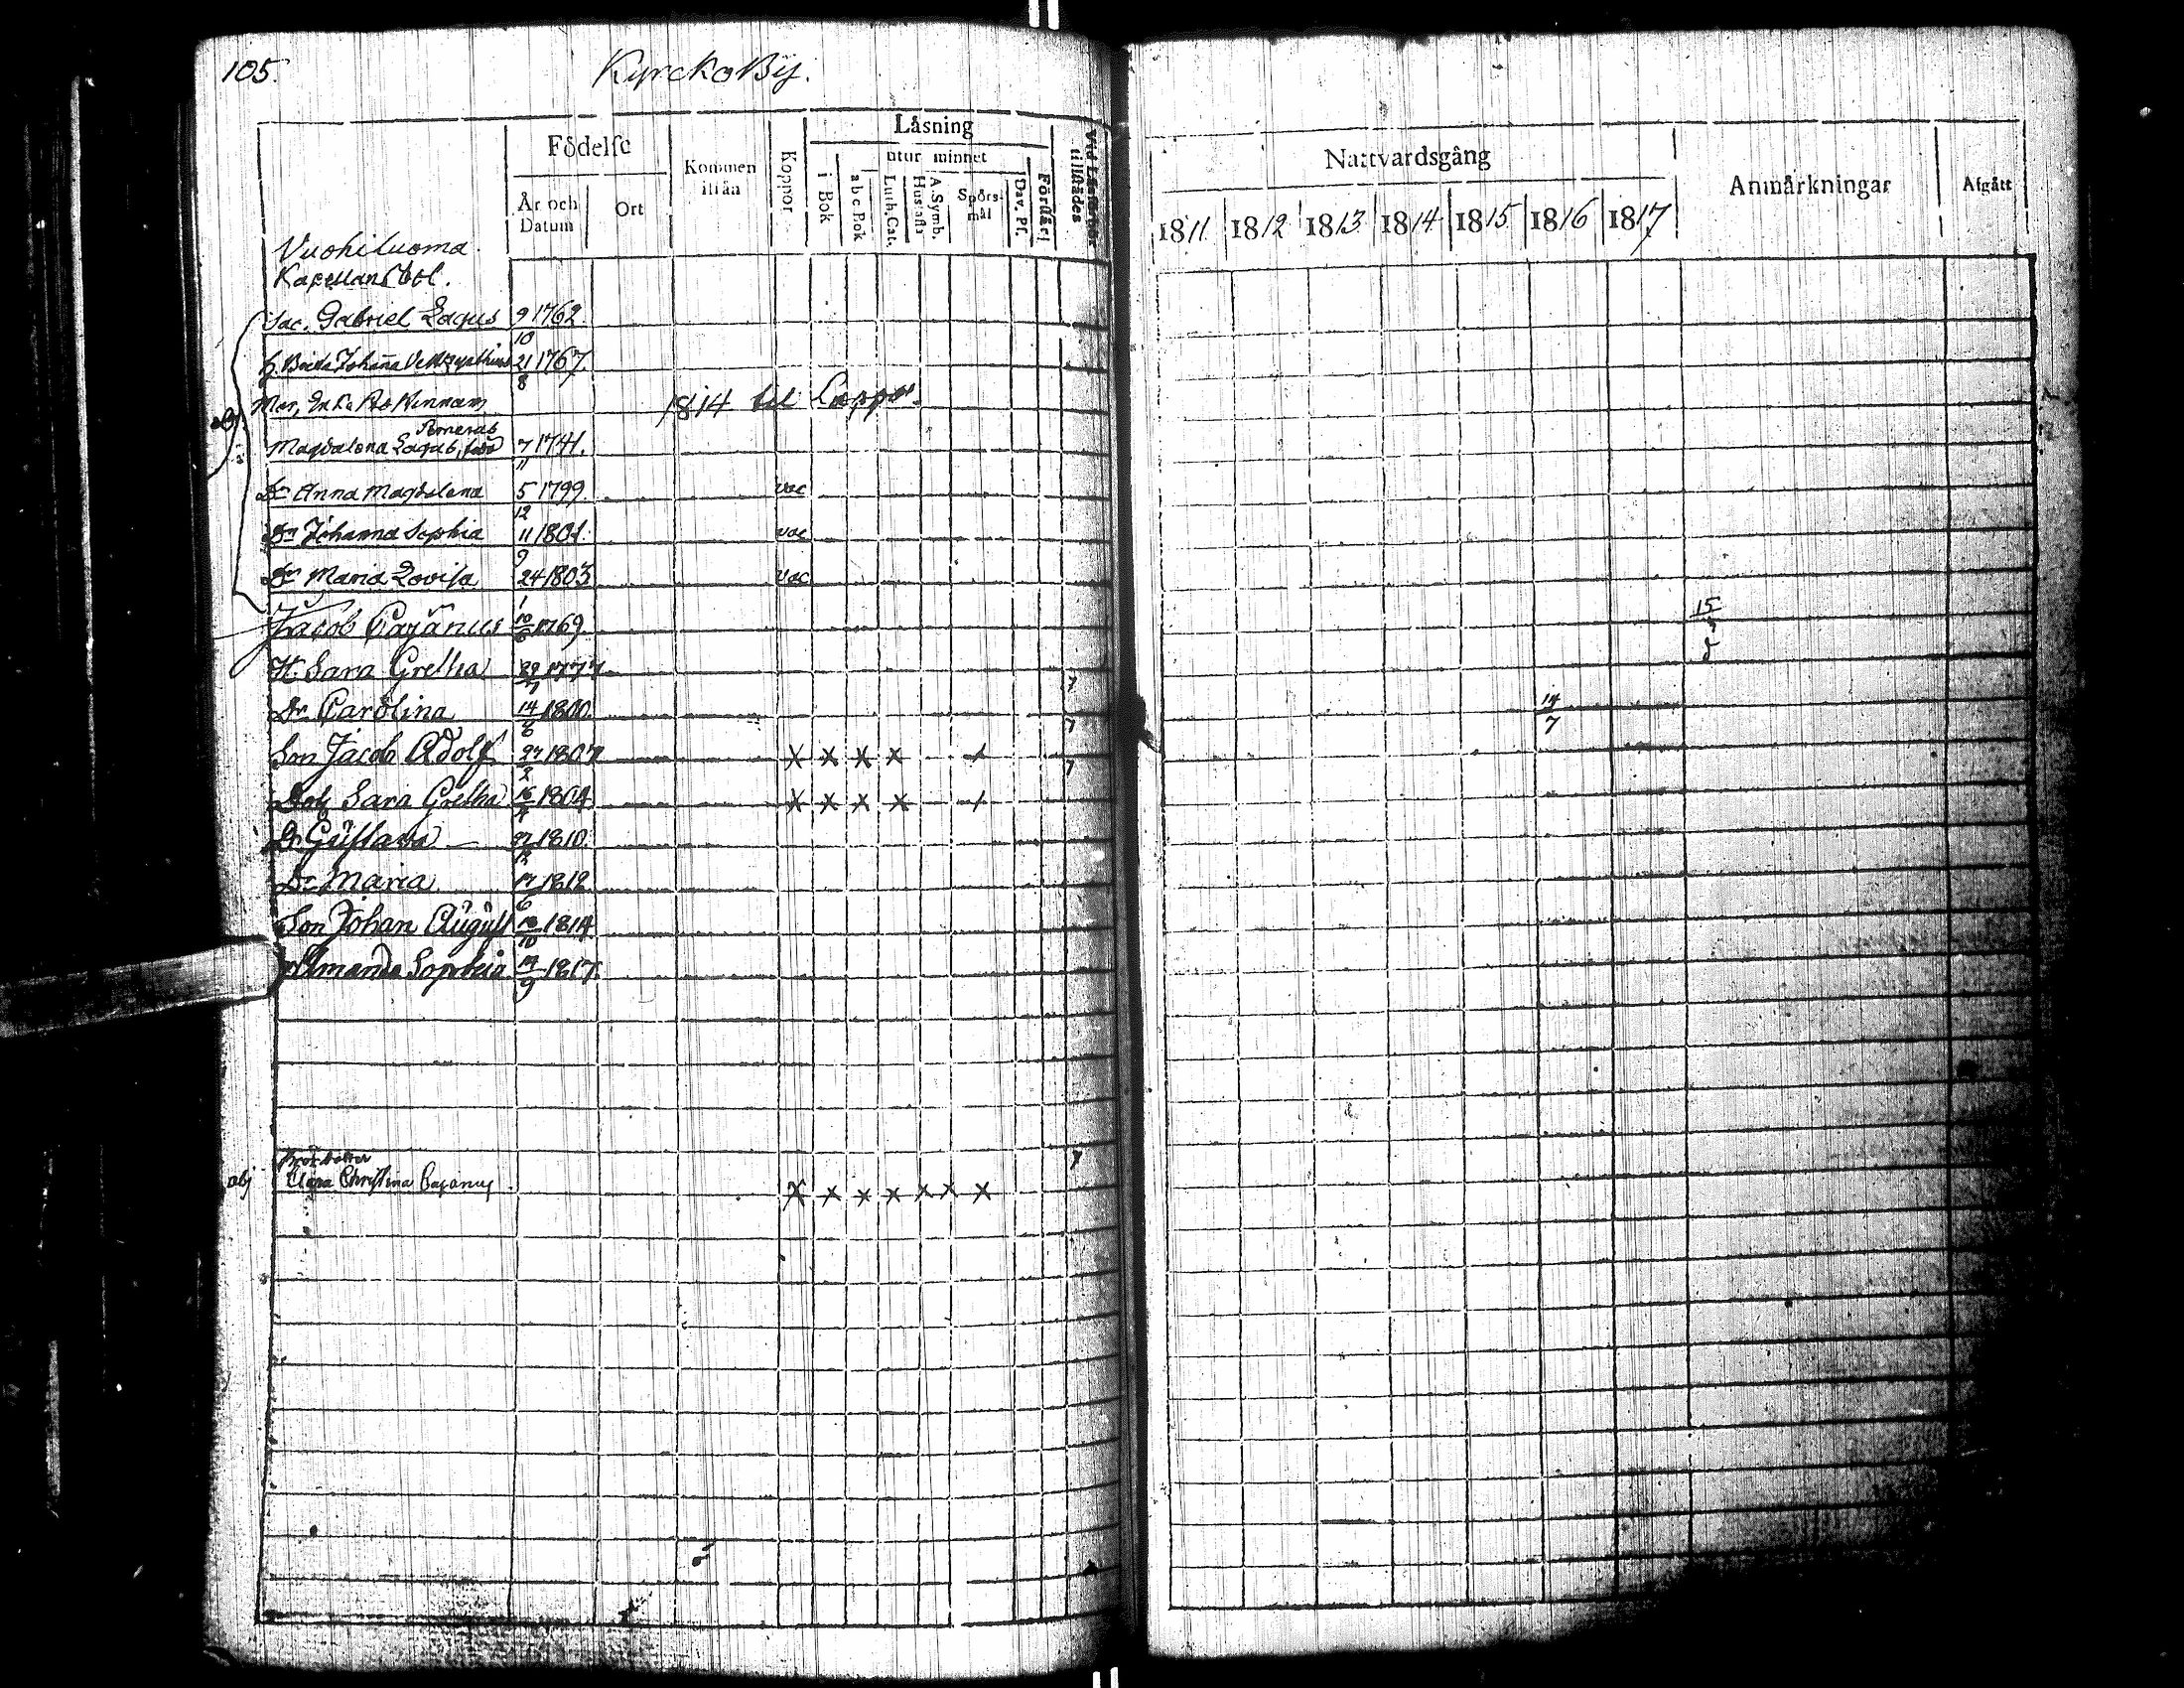 105.
Kyrcko By.
Födelse
År och Datum
Ort
Kommen ifrån
Koppor
Läsning
utur minnet
i Bok
a b c Bok
Luth. Cat.
A. Symb. Hustafla
Spörsmål
Dav. Ps.
Förstår:
Vid Läsförhör tillstädes
Nattvardsgång
1811 1812 1813 1814 1815 1816 1817
Anmärkningar
Afgått
Vuohiluoma
Kapellans bol.
Sac. Gabriel Lagus 9/10 1762.
h. Johanna 21/8 1767.
1814 til Lappo.
Magdalena Lagus, född 7/11 1741.
Dr Anna Magdalena 5/12 1799 vac
Dr Johanna Sophia 11/9 1801. vac
Dr Maria Lovisa 24/1 1803 vac
Jacob Cajanus 10/6 1769 15
H. Sara Gretha 29/7 1777 7
Dr Carolina 14/6 1800. 7 14/7
Son Jacob Adolf 27/2 1807 X X X X 7
Dotr Sara Gretha 16/4 1804 X X X X
Dr Gustava 1810
Dr Maria 17/6 1812
Son Johan August 18/10 1814
Amanda Sophia 14/9 1817.
abj Christina Cajanus X X X X X X X 7